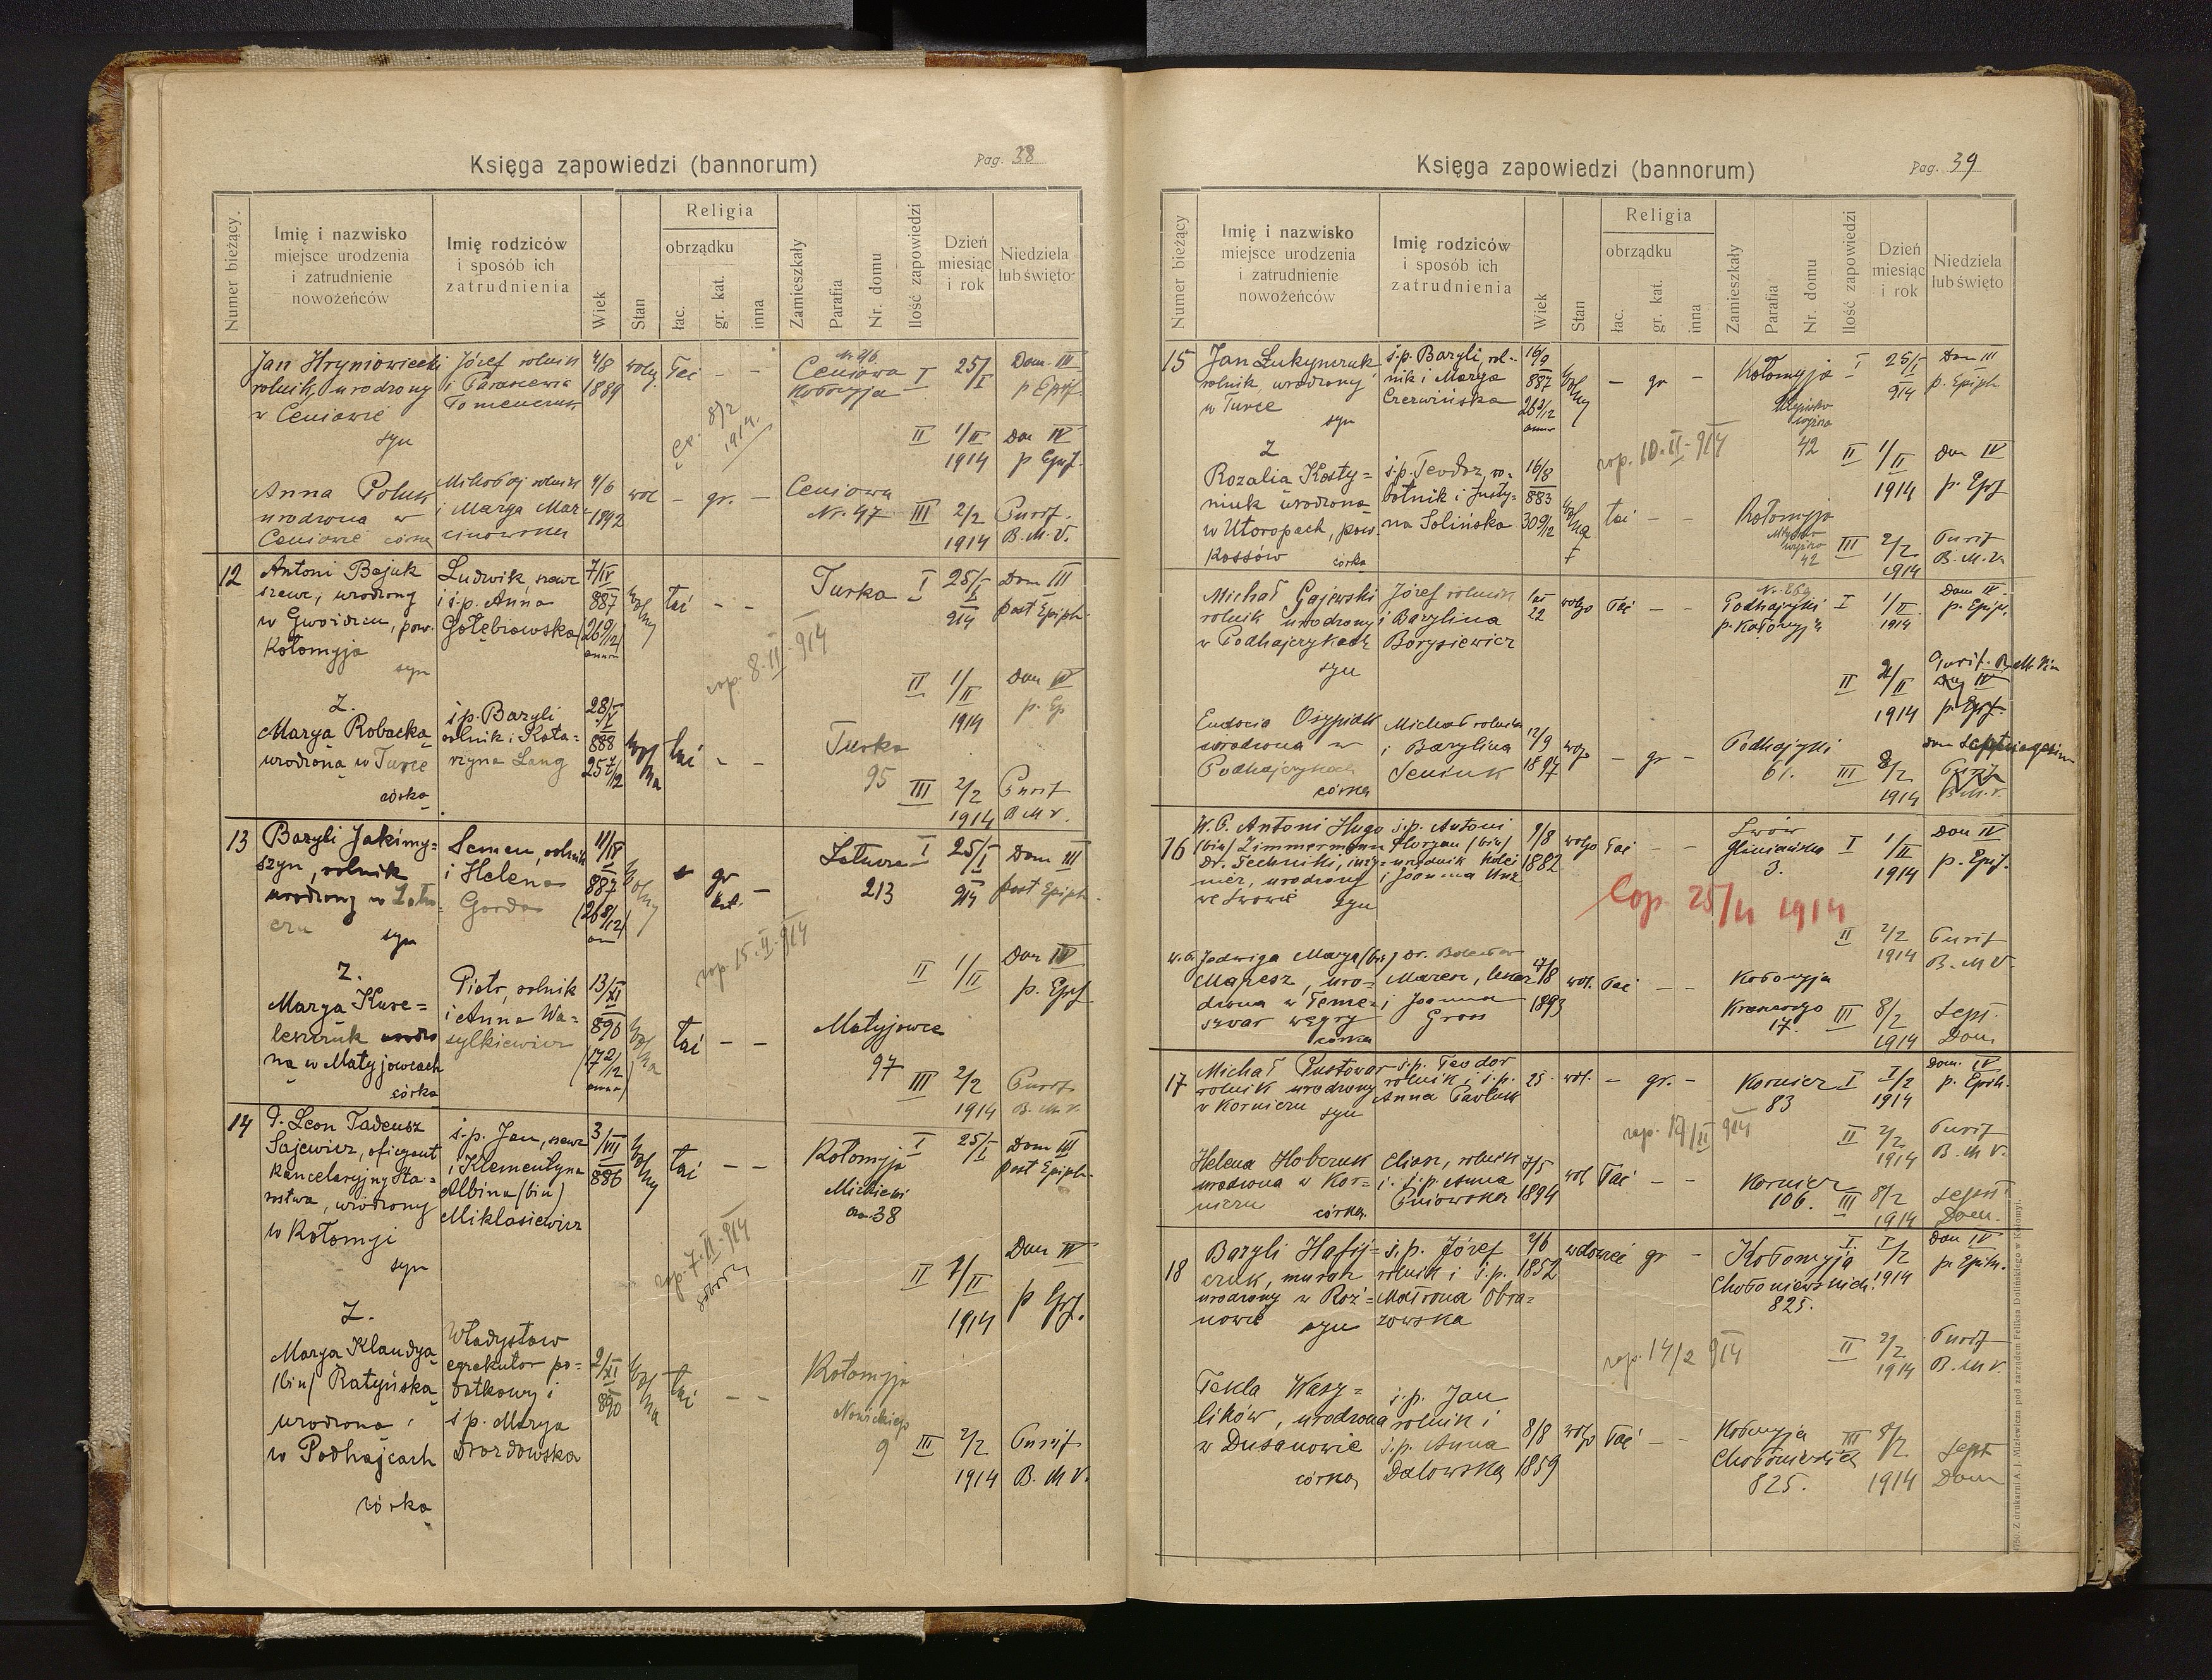 Księga zapowiedzi (bannorum)
Pag. 38
Numer bieżący.
Imię i nazwisko
miejsce urodzenia
i zatrudnienie
nowożeńców
Imię rodziców
i sposób ich
zatrudnienia
Wiek
Stan
Religia
obrządku
łac.
gr. kat.
inna
Zamieszkały
Parafia
Nr. domu
Ilość zapowiedzi
Dzień
miesiąc
i rok
Niedziela
lub święto
Jan Hryniowiecki Józef rolnik 4/8 wolny łać - - Ceniowa I 25/I Dom. III
rolnik, urodzony i Parascewia 1889 Kołomyja p Epif.
w Ceniowie Tomenczuk
syn
cop. 8/2 1914.
II 1/II Dom IV
1914 p Epif.
Anna Poluk Mikołaj rolnik 4/6 wol - gr. - Ceniowa
urodzona w i Marya Mar- 1892 Nr. 47 III 2/2 Purif.
Ceniowie córka cinowska 1914 B. M. V.
12 Antoni Bojuk Ludwik szewc 7/IV Turka I 25/I Dom III
szewc, urodzony i ś.p. Anna 887 wolny łać - - 914 post Epiph.
w Gwoźdzcu, pow. Gołębiowska (26 9/12)
Kołomyja annor
syn
cop. 8.II.914
II 1/II Dom IV
1914 p. Ep
Z.
Marya Robacka ś.p. Bazyli 28/V
urodzona w Turce rolnik i Kata- 888 wolna łać - - Turka
córka rzyna Lang 25 7/12 95 III 2/2 Purif
1914 B M V.
13 Bazyli Jakimy- Semen, rolnik 11/IV I 25/I Dom III
szyn, rolnik i Helena 887 wolny gr kat. - 213 914 post Epiph.
urodzony w Gorda (26 8/12)
syn
cop. 15.II.914
II 1/II Dom IV
p. Epif
Z.
Marya Kure- Piotr, rolnik 13/XI
leszczuk urodzo i Anna Wa- 896 wolna łać - - Matyjowce
na w Matyjowcach sylkiewicz (17 2/12) 97
córka annor III 2/2 Purif
1914 B. M V.
14 P. Leon Tadeusz ś.p. Jan, szewc 3/VII Kołomyja I 25/I Dom III
Sajewicz, oficyant i Klementyna 886 wolny łać - - Mickiewi post Epiph.
kancelaryjny Sta- Albina (bin) cza 38
rostwa, urodzony Miklasiewicz
w Kołomyi
syn
cop. 7.II.914
II 1/II Dom IV
1914 p Epif.
Z.
Marya Klaudya Władysław
(bin) Ratyńska egzekutor po- 2/XI wolna łać - - Kołomyja
urodzona datkowy i 890 Nowickiego
w Podhajcach ś p. Marya 9 III 2/2 Purif
córka Drozdowska 1914 B. M V.
Księga zapowiedzi (bannorum)
Pag. 39
Numer bieżący
Imię i nazwisko
miejsce urodzenia
i zatrudnienie
nowożeńców
Imię rodziców
i sposób ich
zatrudnienia
Wiek
Stan
Religia
obrządku
łac.
gr. kat.
inna
Zamieszkały
Parafia
Nr. domu
Ilość zapowiedzi
Dzień
miesiąc
i rok
Niedziela
lub święto
15 Jan Łukynczuk ś.p. Bazyli, rol- 16/9 wolny - gr - Kołomyja I 25/I Dom III
rolnik, urodzony nik i Marya 887 914 p. Epiph.
w Turce Czerwińska 26 3/12
syn annor
cop. 10.II.914
42 II 1/II Dom IV
1914 p. Epif
Z
Rozalia Kosty- ś.p. Teodor, ro- 16/8
niuk urodzona botnik i Justy- 883 wolna łać - - Kołomyja
w Utoropach, pow. na Solińska 30 9/12 42 III 2/2 Purif
Kossów 1914 B. M. V.
córka
Michał Gajewski Józef rolnik lat 22 wolgo łać - - Podhajczyki I 1/II Dom IV
rolnik urodzony i Bazylina p. Kołomyja 1914 p. Epif.
w Podhajczykach Borysiewicz
syn
II 2/II Purif. B. M. Vir
1914 p. Epif.
Eudocia Osypiuk Michał rolnik 12/9 wolgo - gr - Podhajczyki
urodzona w i Bazylina 1897 61. III 8/2 Dom Septuagesim
Podhajczykach Seniuk 1914
córka
16 W. P. Antoni Hugo ś.p. Antoni 9/8 wolgo łać - - Lwów I 1/II Dom IV
(bin) Zimmermann Floryan (bin) 1882 Gliniańska 1914 p. Epif.
Dr. Techniki, inży- urzędnik kolei 3.
nier, urodzony i Joanna
we Lwowie
syn
Cop. 25/II 1914
II 2/2 Purif
1914 B. M V.
W. P. Jadwiga Marya (bin) Dr. Bolesław
Maresz, uro- Maresz, lekarz 17/8 wol. łać - - Kołomyja
dzona w Teme- i Joanna 1893 17. III 8/2 Sept.
szvar węgry Gross 1914 Dom
córka
17 Michał Pustowar ś.p. Teodor 25 wol. - gr. - Kornicz I 1/2 Dom. IV
rolnik urodzony rolnik i ś.p. 83 1914 p. Epih.
w Korniczu Anna Pawluk
syn
cop. 14/II 914
II 2/2 Purif
1914 B. M V.
Helena Hobczuk Elias, rolnik 7/5 wol łać - - Kornicz
urodzona w Kor- i ś.p. Anna 1894 106. III 8/2 Sept
niczu córka Gniowska 1914 Dom.
18 Bazyli Hafij- ś.p. Józef 2/6 wdowiec gr - Kołomyja I. 1/2 Dom IV
czuk, murarz rolnik i ś.p. 1852 Chołoniewskich 1914 p. Epih.
urodzony w Roż- Matrona Obra- 825.
nowie syn zowska
cop. 14/2 914
II 2/2 Purif
1914 B. M V.
Tekla Wasy- ś.p. Jan
lików, urodzona rolnik i 8/8 wolgo łać - - Kołomyja III 8/2 Sept
w Dusanowie ś.p. Anna 1859 Chołoniewskich 1914 Dom
córka Dalowska 825.
1750. Z drukarni A. J. Miziewicza pod zarządem Feliksa Dolińskiego w Kołomyi.